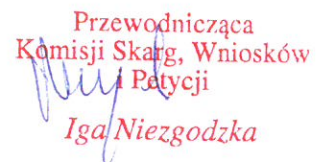 Przewodnicząca
Komisji Skarg, Wniosków
i Petycji
Iga Niezgodzka